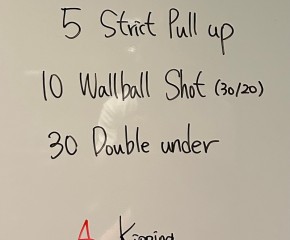 5 Strict Pull up
10 Wallball Shot (30/20)
30 Double under
A Kipping